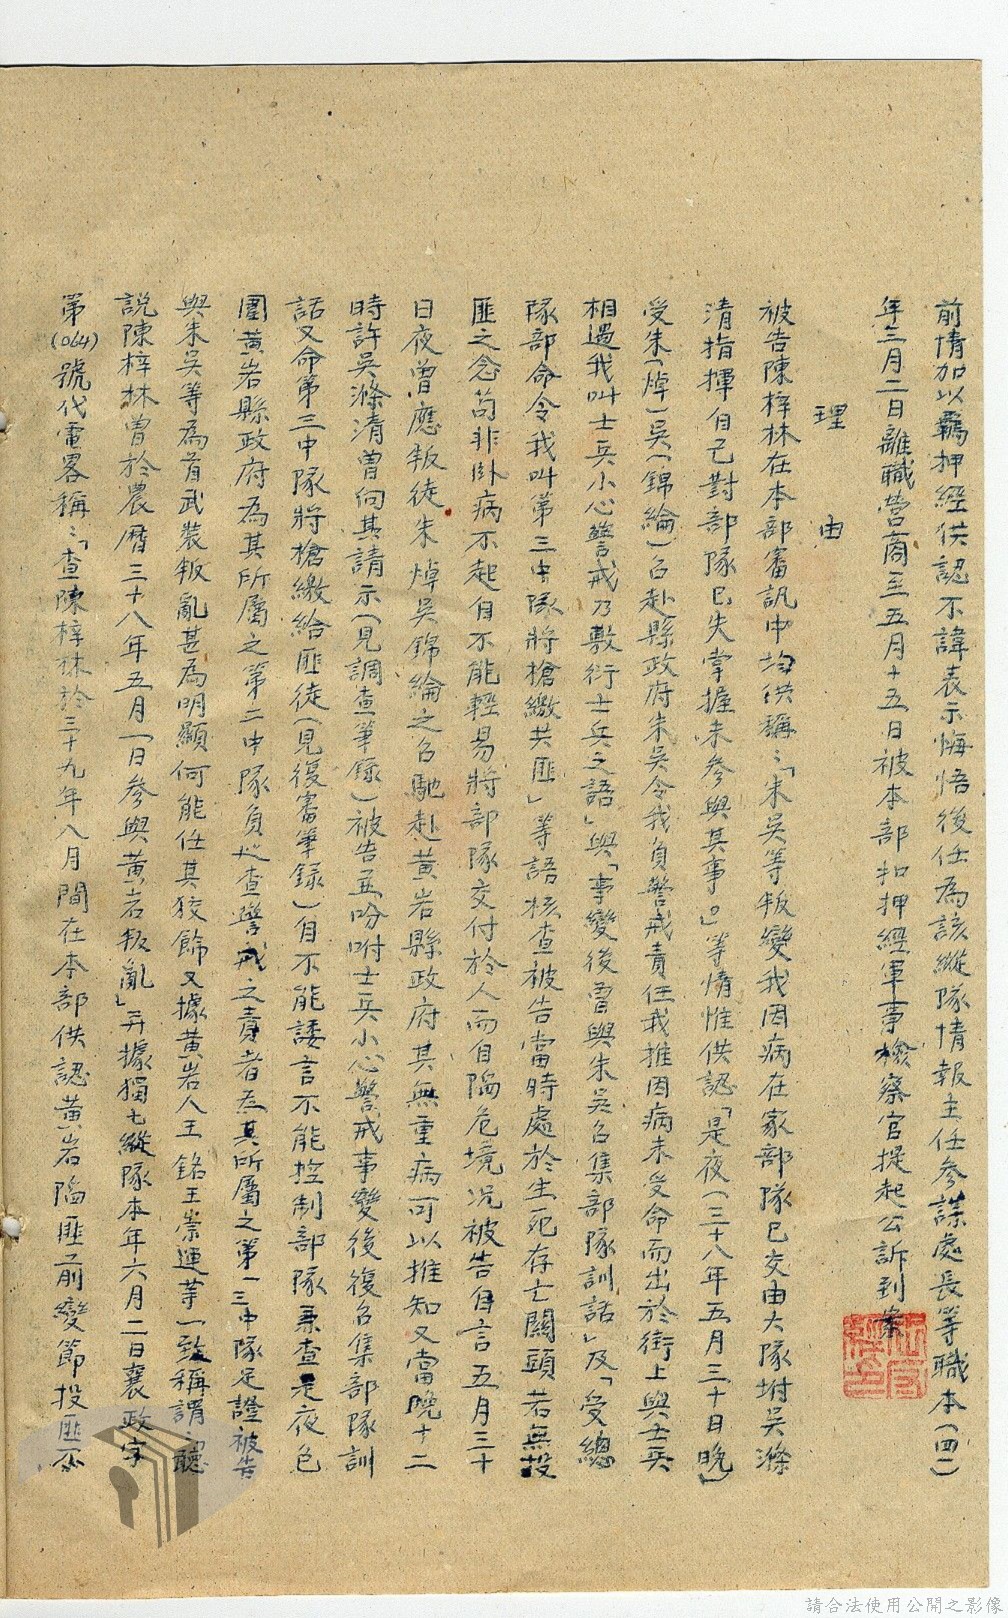 前情加以羈押經供認不諱表示悔悟後任為該縱隊情報主任參謀處長等職本(四一)
年三月二日離職營商至五月十五日被本部扣押經軍事檢察官提起公訴到案
理由
被告陳梓林在本部審訊中均供稱：「朱吳等叛變我因病在家部隊已交由大隊坿吳滌
清指揮自己對部隊已失掌握未參與其事。」等情惟供認「是夜(三十八年五月三十日晚)
受朱(焯)吳(錦綸)召赴縣政府朱吳令我負警戒責任我推因病未受命而出於街上與士兵
相遇我叫士兵小心警戒乃敷衍士兵之語」與「事變後曾與朱吳召集部隊訓話」及「受總
隊部命令我叫第三中隊將槍繳共匪」等語核查被告當時處於生死存亡關頭若無投
匪之念苟非卧病不起自不能輕易將部隊交付於人而自陥危境況被告自言五月三十
日夜曾應叛徒朱焯吳錦綸之召馳赴黃岩縣政府其無重病可以推知又當晚十二
時許吳滌清曾向其請示(見調查筆錄)被告並吩咐士兵小心警戒事變後復召集部隊訓
話又命第三中隊將槍繳給匪徒(見復審筆錄)自不能諉言不能控制部隊兼查是夜包
圍黃岩縣政府為其所屬之第二中隊負巡查警戒之責者為其所屬之第一三中隊足證被告
與朱吳等為首武裝叛亂甚為明顯何能任其狡飾又據黃岩人王銘王崇連等一致稱謂：「聽
說陳梓林曾於農曆三十八年五月一日參與黃岩叛亂」弄據獨七縱隊本年六月二日襄政字
第(064)號代電畧稱：「查陳梓林於三十九年八月間在本部供認黃岩陥匪前變節投匪不
請合法使用公開之影像